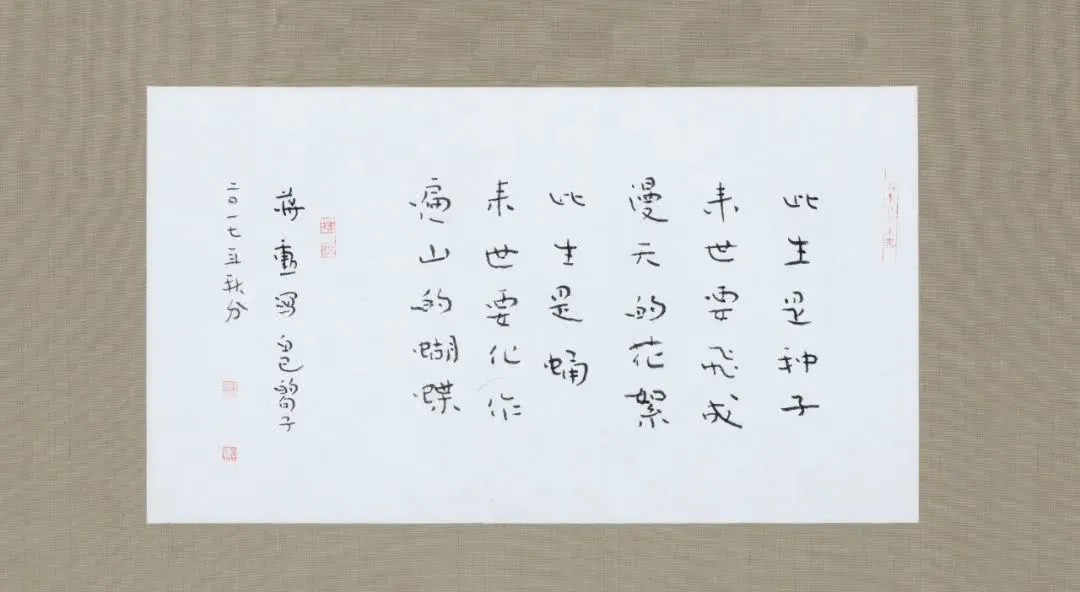 此生是种子
来世要飛成
漫天的花絮
此生是蛹
来世要化作
遍山的蝴蝶
蒋勳写自己的句子
二〇一七年秋分